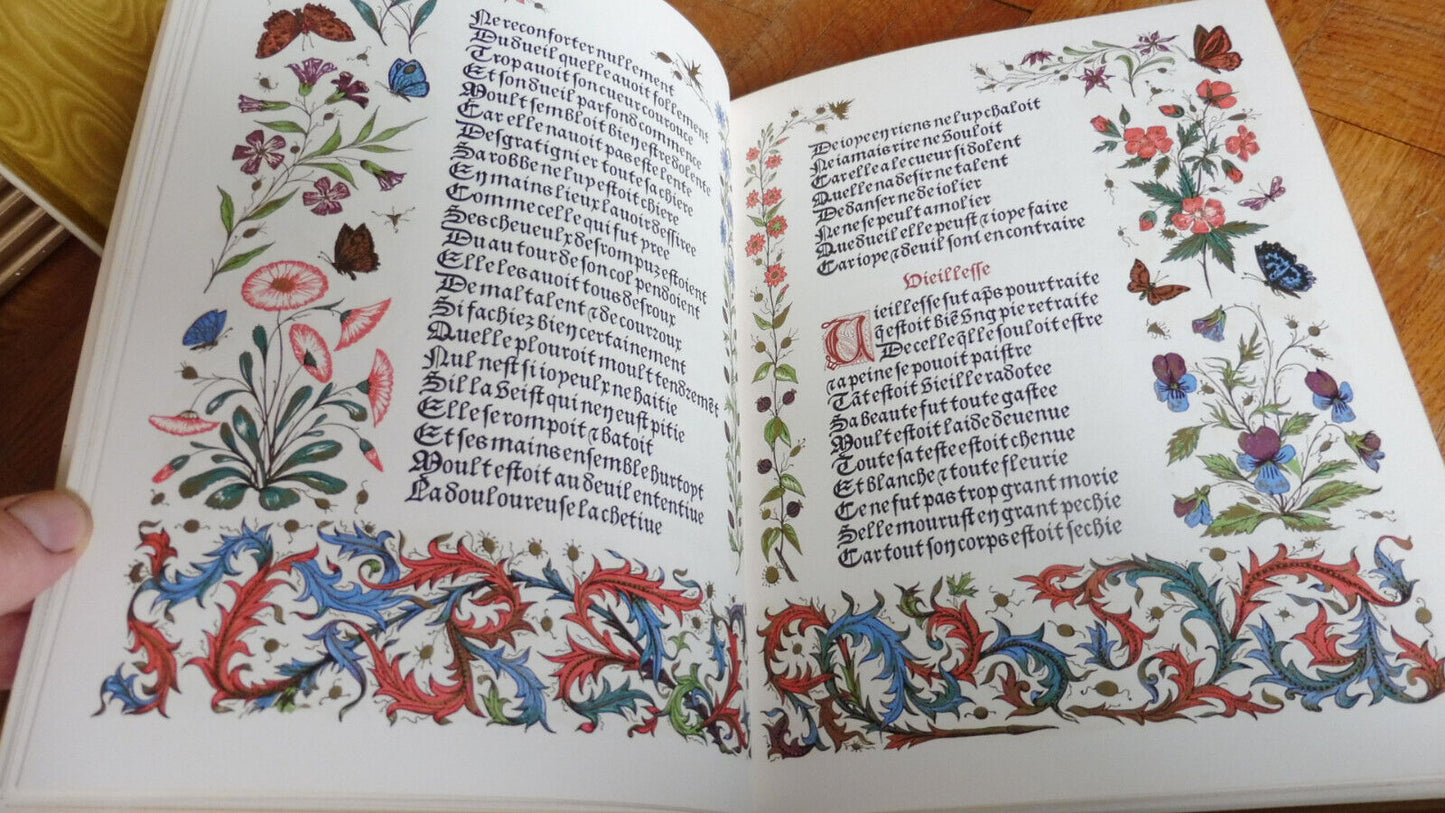 Ne reconforter nullement
Du dueil quelle auoit follement
Trop auoit son cueur courouce
Et son dueil parfond commence
Moult sembloit bien estre dolente
Car elle nauoit pas este lente
Desgratignier toute sa chiere
Sa robbe ne luy estoit chiere
En mains lieux lauoit dessiree
Comme celle qui fut yree
Ses cheueulx desrompuz estoient
Du autour de son col pendoient
Elle les auoit tous desroux
De mal talent & de courroux
Si sachiez bien certainement
Quelle plouroit moult tendremēt
Nul nest si ioyeulx ne haitie
Sil la veist qui nen eust pitie
Elle se rompoit & batoit
Et ses mains ensemble hurtoyt
Moult estoit au dueil ententiue
La douloureuse lachetiue
De ioye en riens ne luy chaloit
Ne iamais rire ne vouloit
Car elle a le cueur si dolent
Quelle na desir ne talent
De danser ne de iolier
Ne ne se peult amolier
Que dueil elle peust & ioye faire
Car ioye & deuil sont en contraire
Vieillesse
Uieillesse fut ap̄s pourtraite
Q̄ estoit biē vng pie retraite
De celle q̄lle souloit estre
& a peine se pouoit paistre
Tāt estoit vieille radotee
Sa beaute fut toute gastee
Moult estoit laide deuenue
Toute sa teste estoit chenue
Et blanche & toute fleurie
Ce ne fut pas trop grant morie
Selle mourust en grant pechie
Car tout son corps estoit sechie